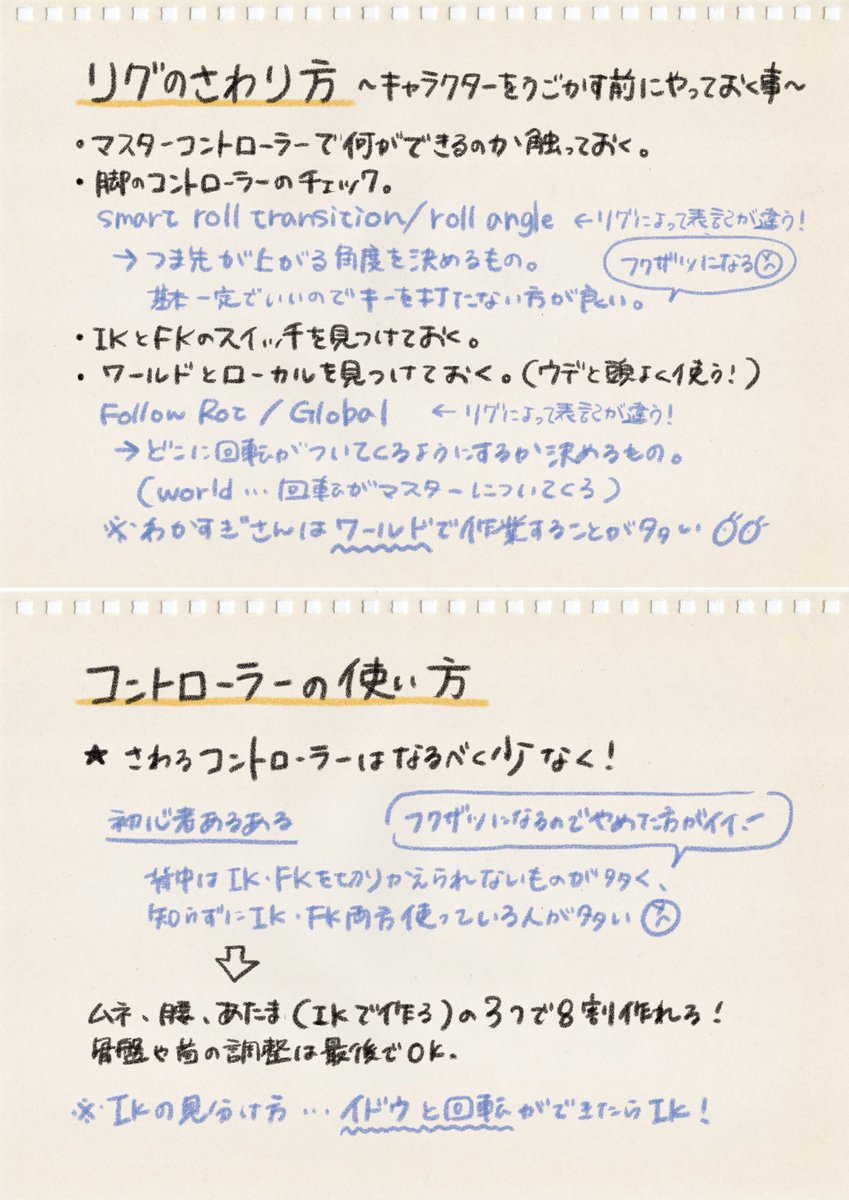 リグのさわり方 〜キャラクターをうごかす前にやっておく事〜
・マスターコントローラーで何ができるのか触っておく。
・脚のコントローラーのチェック。
smart roll transition/roll angle ←リグによって表記が違う!
→つま先が上がる角度を決めるもの。
フクザツになる
基本一定でいいのでキーを打たない方が良い。
・IKとFKのスイッチを見つけておく。
・ワールドとローカルを見つけておく。(ウデと頭よく使う!)
Follow Rot / Global ←リグによって表記が違う!
→どこに回転がついてくるようにするか決めるもの。
(world…回転がマスターについてくる)
※わかすぎさんはワールドで作業することが多い
コントローラーの使い方
★ さわるコントローラーはなるべく少なく!
初心者あるある
フクザツになるのでやめた方がイイ!
背中はIK・FKを切りかえられないものが多く、
知らずにIK・FK両方使っている人が多い
⇩
ムネ、腰、あたま(IKで作る)の3つで8割作れる!
骨盤や首の調整は最後でOK.
※IKの見分け方…イドウと回転ができたらIK!